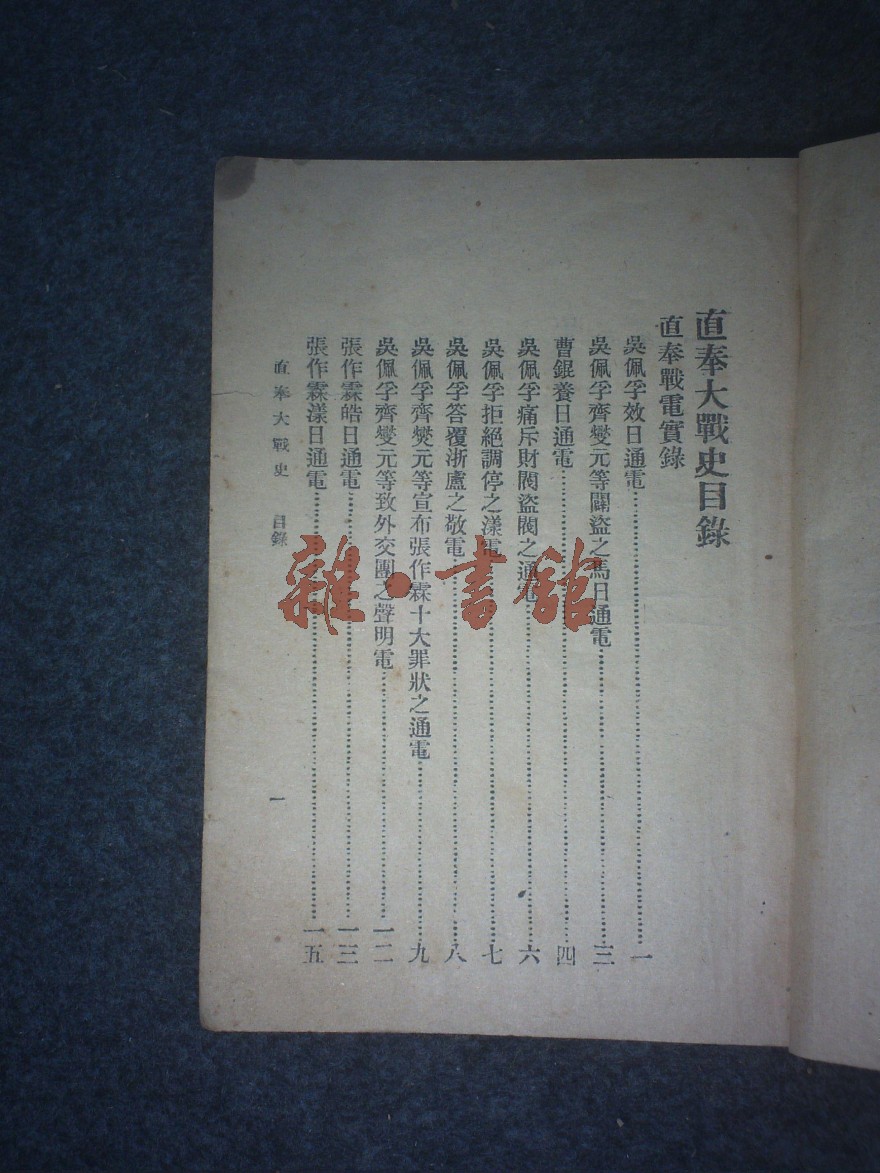 直奉大戰史目錄
直奉戰電實錄
吳佩孚效日通電……一
吳佩孚齊燮元等闢盜之馬日通電……三
曹錕養日通電……四
吳佩孚痛斥財閥盜閥之通電……六
吳佩孚拒絕調停之漾電……七
吳佩孚答覆浙盧之敬電……八
吳佩孚齊燮元等宣布張作霖十大罪狀之通電……九
吳佩孚齊燮元等致外交團之聲明電……一二
張作霖皓日通電……一三
張作霖漾日通電……一五
直奉大戰史 目錄 一
雜·書館